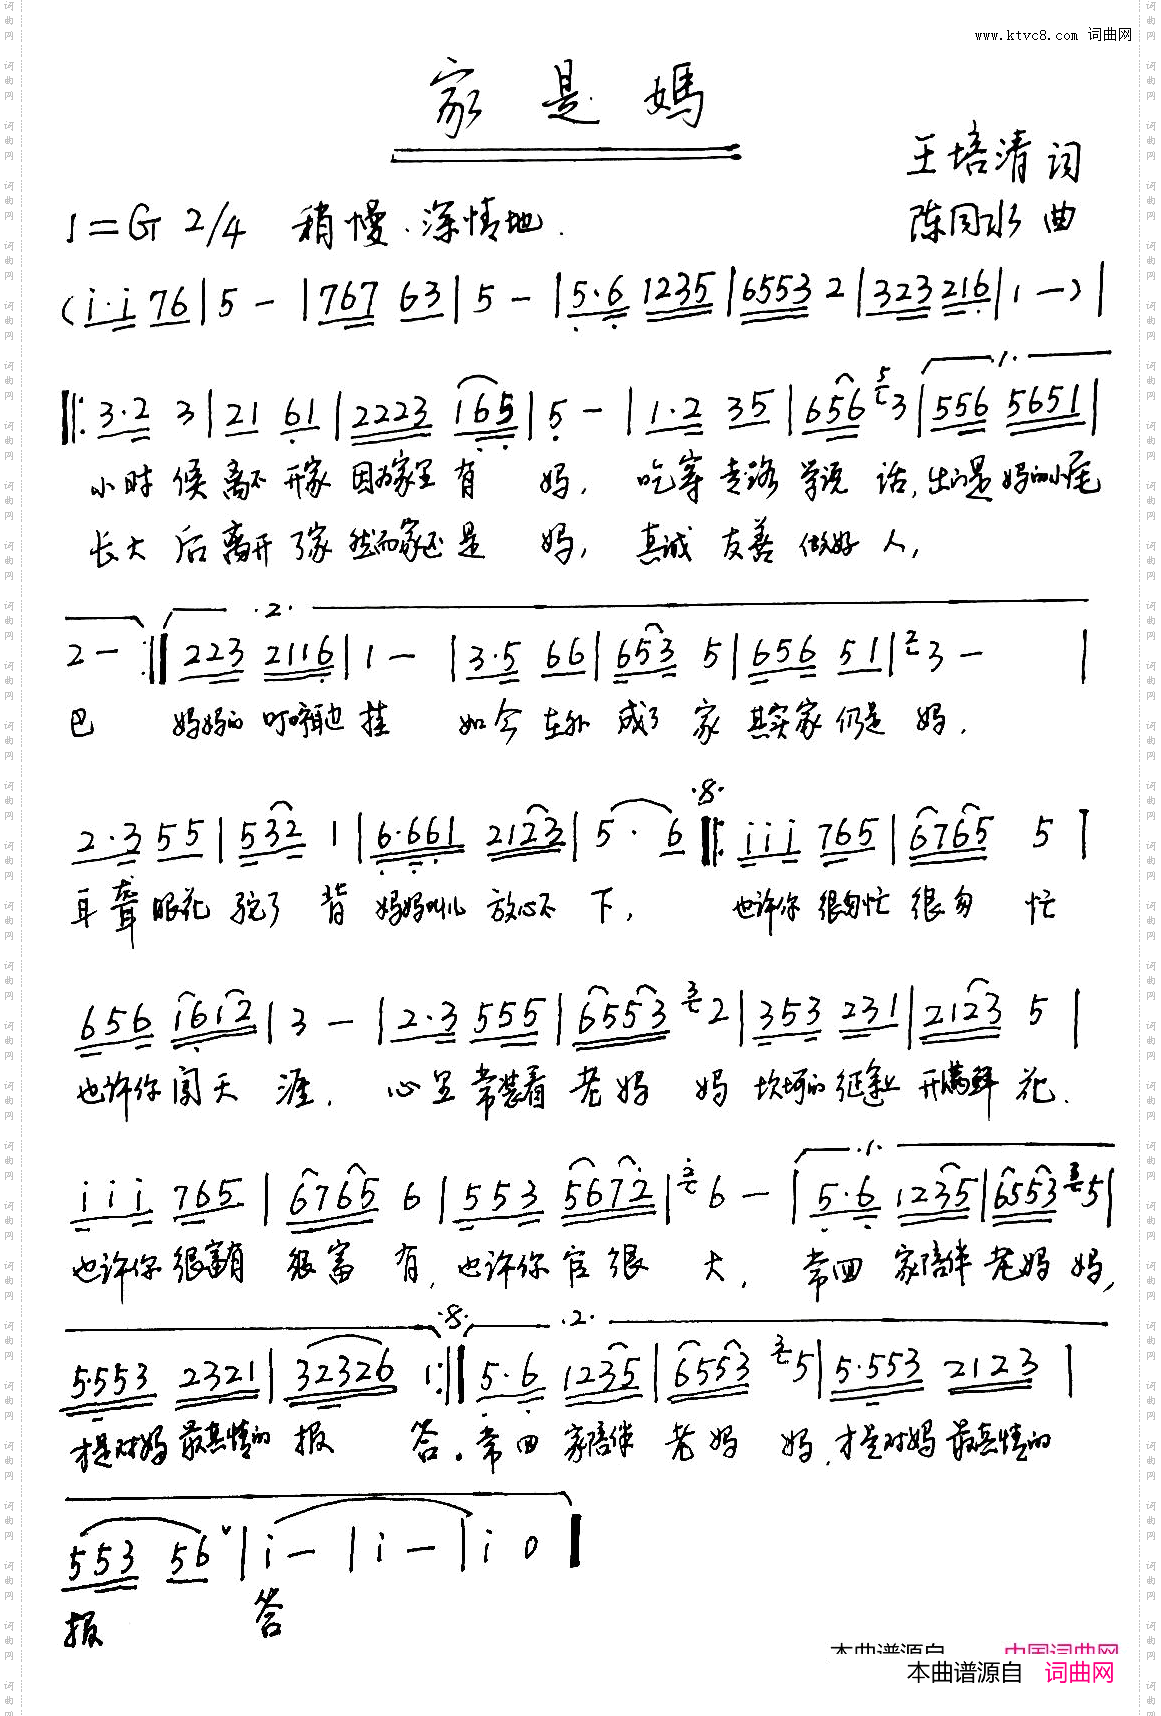 www.ktvc8.com 词曲网
家是媽
王培清 词
1=G 2/4 稍慢.深情地.
陈同水 曲
(i·i 76|5 -|767 63|5 -|5·6 1235|6553 2|323 216|1 -)|
·1·
‖: 3·2 3|21 61|2223 165|5 -|1·2 35|656 3|556 5651|
小时候离不开家因为家里有妈,吃穿走路学说话,出的是妈的小尾
长大后离开了家然而家还是妈,真诚友善做好人,
·2·
2 - :‖223 2116|1 -|3·5 66|653 5|656 51|3 -|
巴 妈妈的叮咛耳边挂 如今在外成了家其实家仍是妈.
2·3 55|532 1|6·661 2123|5· 6‖: iii 765|6765 5|
耳聋眼花驼了背妈妈叫儿放心不下, 也许你很匆忙很匆忙
656 1612|3 -|2·3 555|6553 2|353 231|2123 5|
也许你闯天涯. 心里常装着老妈妈坎坷的征途上开满鲜花.
·1·
iii 765|6765 6|553 5672|6 -|5·6 1235|6553 5|
也许你很富有很富有,也许你官很大,常回家陪伴老妈妈,
·2·
5·553 2321|32326 1:‖5·6 1235|6553 5|5·553 2123|
才是对妈最真情的报答。常回家陪伴老妈妈,才是对妈最真情的
553 56|i -|i -|i 0‖
报答
本曲谱源自 中国词曲网
本曲谱源自 词曲网